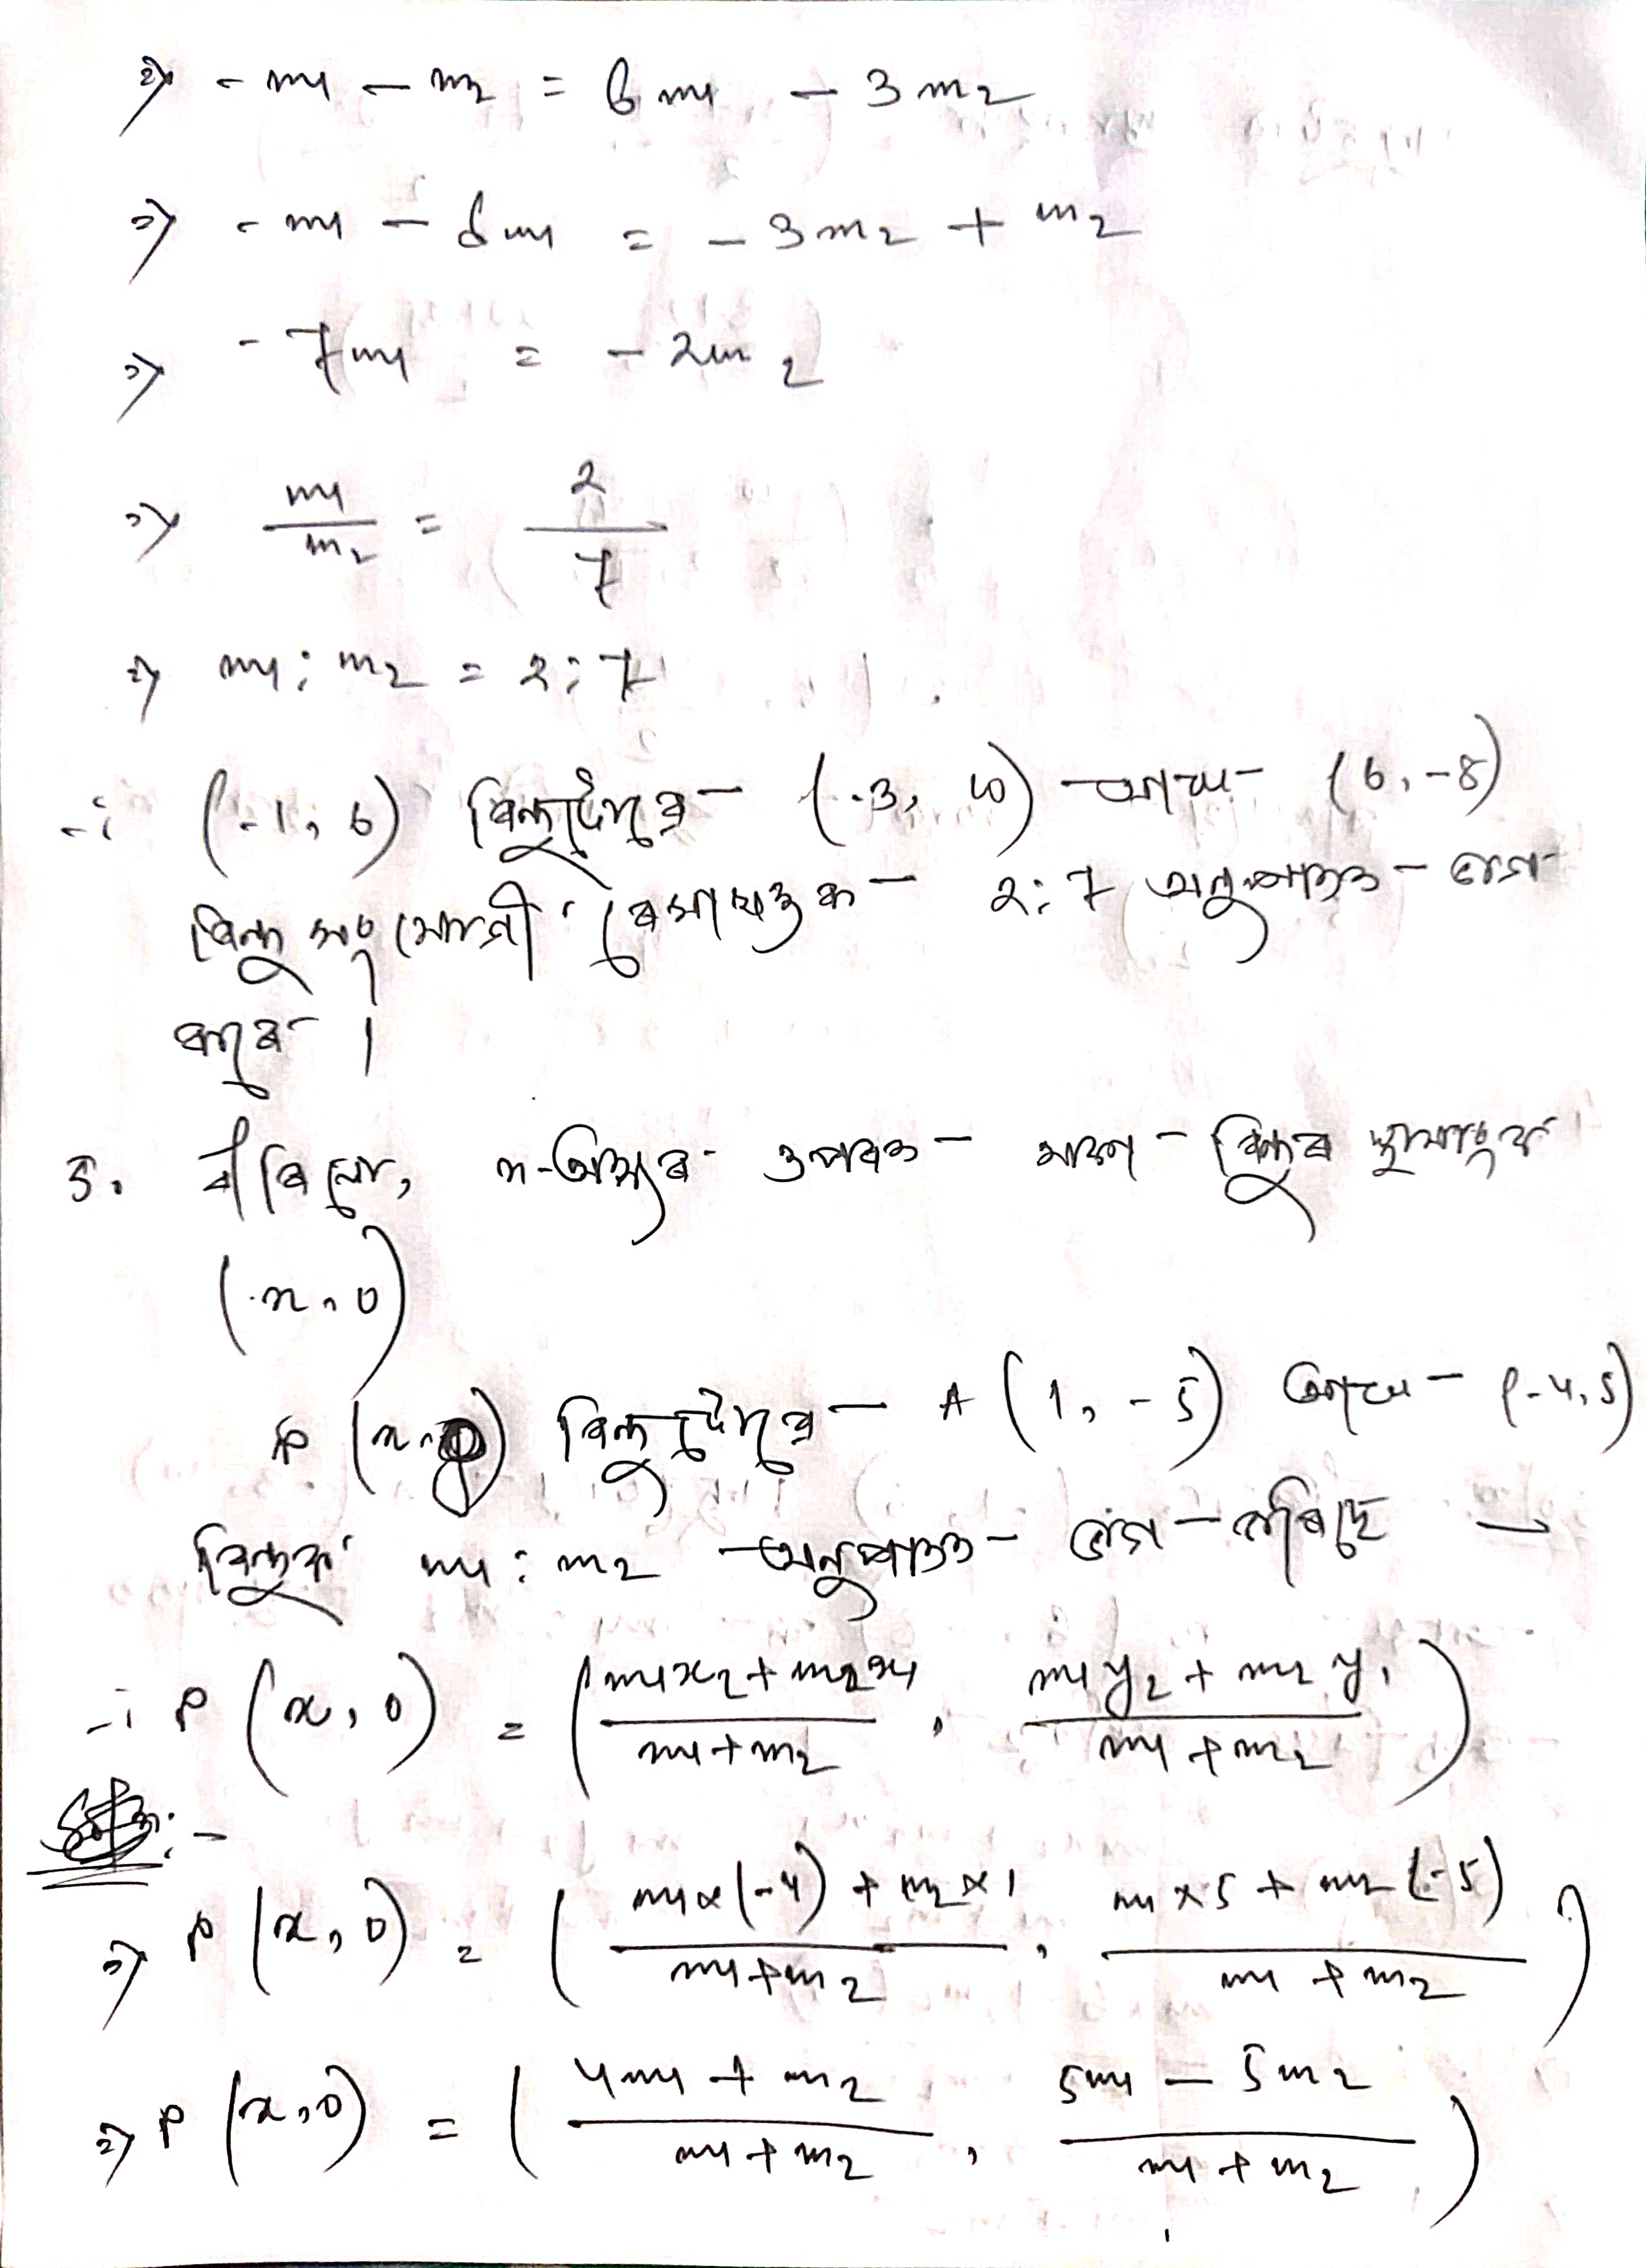 ⇒ - m1 - m2 = 6 m1 - 3 m2
⇒ - m1 - 6 m1 = - 3 m2 + m2
⇒ - 7 m1 = - 2 m2
⇒ m1/m2 = 2/7
⇒ m1 : m2 = 2 : 7
∴ (-1, 6) বিন্দুটোৱে (-3, 10) আৰু (6, -8)
বিন্দু সংযোগী ৰেখাখণ্ডক 2 : 7 অনুপাতত ভাগ
কৰে ।
5. ধৰিলো, x-অক্ষৰ ওপৰত থকা বিন্দুৰ স্থানাংক
(x, 0)
P (x, 0) বিন্দুটোৱে A (1, -5) আৰু (-4, 5)
বিন্দুক m1 : m2 অনুপাতত ভাগ কৰিছে
∴ P (x, 0) = ( m1x2 + m2x1 / m1 + m2 , m1y2 + m2y1 / m1 + m2 )
⇒ P (x, 0) = ( m1 × (-4) + m2 × 1 / m1 + m2 , m1 × 5 + m2 (-5) / m1 + m2 )
⇒ P (x, 0) = ( 4m1 + m2 / m1 + m2 , 5m1 - 5m2 / m1 + m2 )